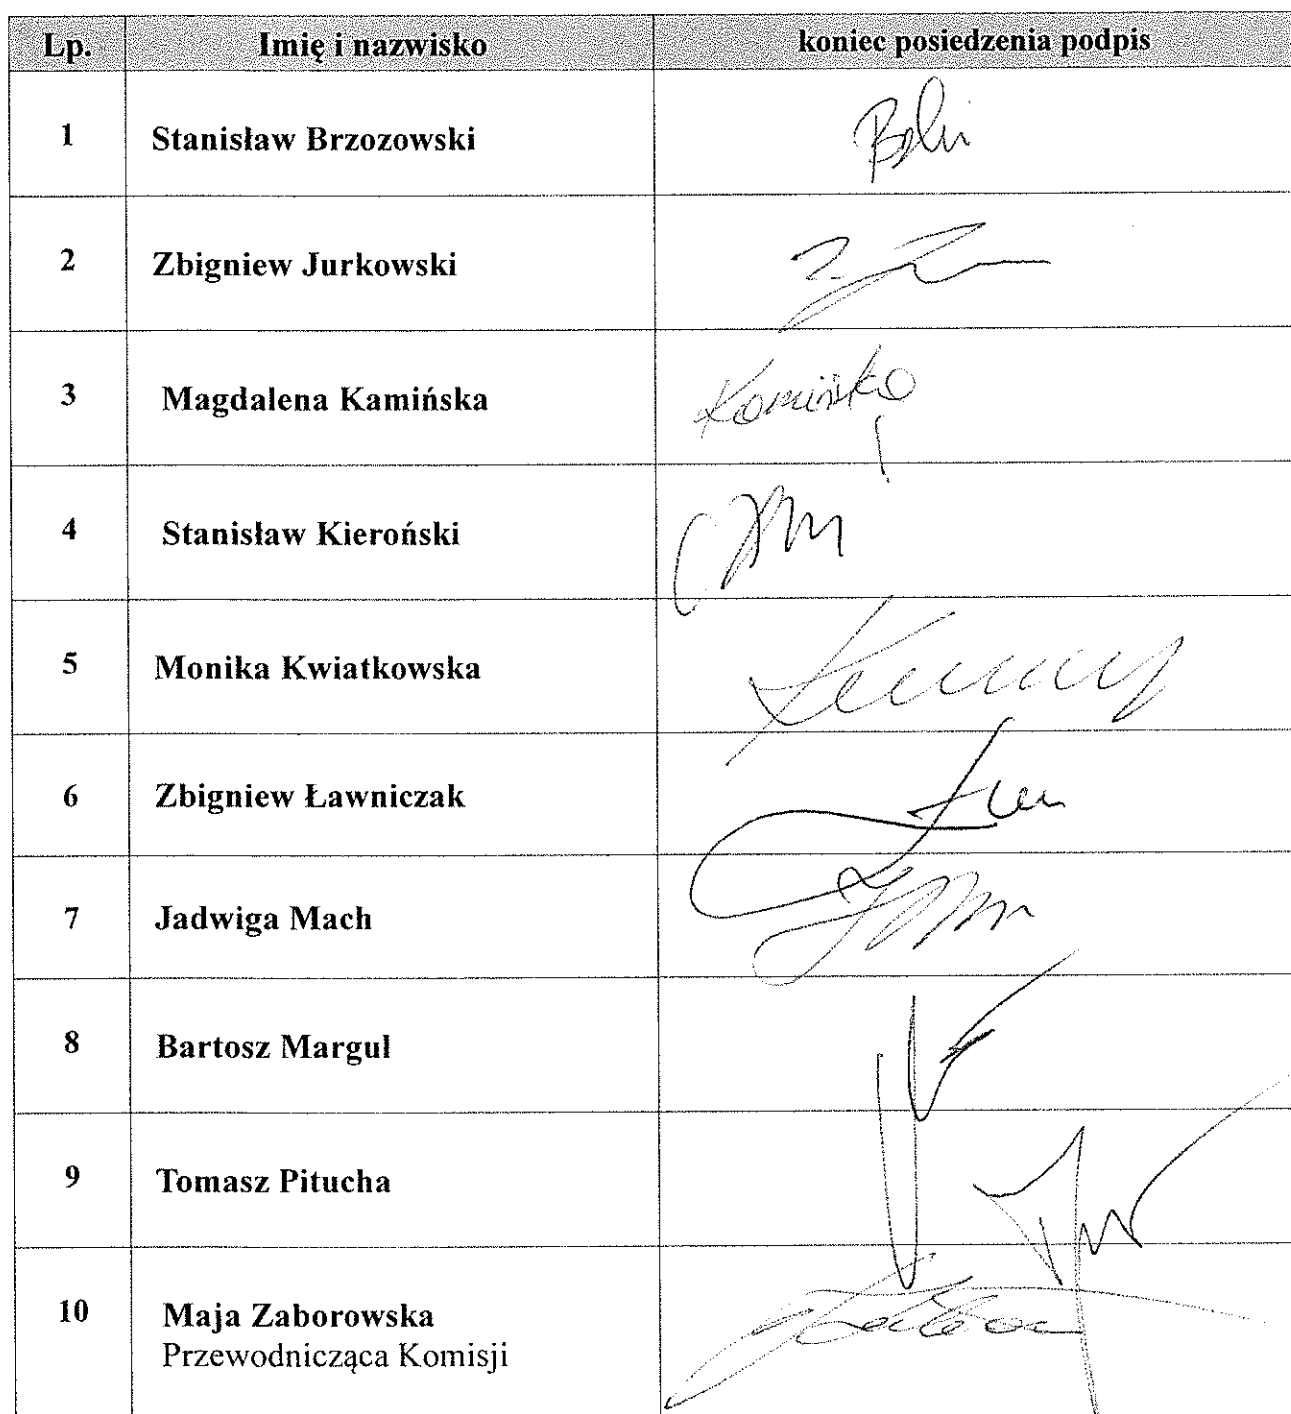 Lp. Imię i nazwisko koniec posiedzenia podpis
1 Stanisław Brzozowski
2 Zbigniew Jurkowski
3 Magdalena Kamińska Kamińska
4 Stanisław Kieroński
5 Monika Kwiatkowska
6 Zbigniew Ławniczak
7 Jadwiga Mach
8 Bartosz Margul
9 Tomasz Pitucha
10 Maja Zaborowska
Przewodnicząca Komisji